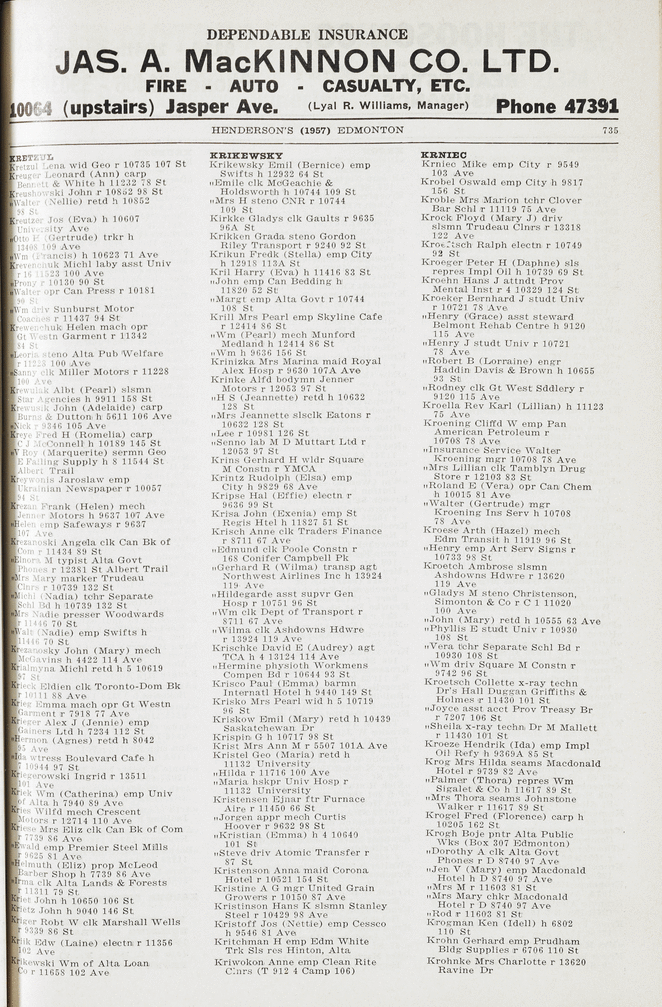 DEPENDABLE INSURANCE
JAS. A. MacKINNON CO. LTD.
FIRE - AUTO - CASUALTY, ETC.
10064 (upstairs) Jasper Ave. (Lyal R. Williams, Manager) Phone 47391
HENDERSON'S (1957) EDMONTON 735
KRETZUL
Kretzul Lena wid Geo r 10735 107 St
Kreuger Leonard (Ann) carp
Bennett & White h 11232 78 St
Kreushowski John r 10852 98 St
„Walter (Nellie) retd h 10852
98 St
Kreutzer Jos (Eva) h 10607
University Ave
„Otto H (Gertrude) trkr h
13408 109 Ave
„Wm (Francis) h 10623 71 Ave
Krevenchuk Michl baby asst Univ
r 16 11523 100 Ave
„Prony r 10130 90 St
„Walter opr Can Press r 10181
90 St
„Wm driv Sunburst Motor
Coaches r 11437 94 St
Krewenchuk Helen mach opr
Gt Westn Garment r 11342
84 St
„Leoria steno Alta Pub Welfare
r 11228 100 Ave
„Sanny clk Miller Motors r 11228
100 Ave
Krewulak Albt (Pearl) slsmn
Star Agencies h 9911 158 St
Krewusik John (Adelaide) carp
Burns & Dutton h 5611 106 Ave
„Nick r 9346 105 Ave
Kreye Fred H (Romelia) carp
C J McConnell h 10189 145 St
„V Roy (Marguerite) sermn Geo
E Failing Supply h 8 11544 St
Albert Trail
Kreywonis Jaroslaw emp
Ukrainian Newspaper r 10057
94 St
Krezan Frank (Helen) mech
Healner Motors h 9637 107 Ave
„Helen emp Safeways r 9637
107 Ave
Krezanoski Angela clk Can Bk of
Com r 11434 89 St
„Elnora M typist Alta Govt
Phones r 12381 St Albert Trail
„Mrs Mary marker Trudeau
Clnrs r 10739 132 St
„Michl (Nadia) tchr Separate
Schl Bd h 10739 132 St
„Mrs Nadie presser Woodwards
r 11446 70 St
„Walt (Nadie) emp Swifts h
11446 70 St
Krezanosky John (Mary) mech
McGavins h 4422 114 Ave
Krialmyna Michl retd h 5 10619
97 St
Krieck Eldien clk Toronto-Dom Bk
r 10111 88 Ave
Krieg Emma mach opr Gt Westn
Garment r 7918 77 Ave
Krieger Alex J (Jennie) emp
Gainers Ltd h 7234 112 St
„Hermon (Agnes) retd h 8042
95 Ave
„Ida wtress Boulevard Cafe h
7 10944 97 St
Kriegerowski Ingrid r 13511
101 Ave
Kriek Wm (Catherina) emp Univ
of Alta h 7940 89 Ave
Kries Wilfd mech Crescent
Motors r 12714 110 Ave
Kriese Mrs Eliz clk Can Bk of Com
r 7739 86 Ave
„Ewald emp Premier Steel Mills
r 9625 81 Ave
„Helmuth (Eliz) prop McLeod
Barber Shop h 7739 86 Ave
„Irma clk Alta Lands & Forests
r 11311 79 St
Kriet John h 10650 106 St
Krietz John h 9040 146 St
Kriger Robt W clk Marshall Wells
r 9339 86 St
Krilik Edw (Laine) electn r 11356
102 Ave
Krikewski Wm of Alta Loan
Co r 11658 102 Ave
KRIKEWSKY
Krikewsky Emil (Bernice) emp
Swifts h 12932 64 St
„Emile clk McGeachie &
Holdsworth h 10744 109 St
„Mrs H steno CNR r 10744
109 St
Kirkke Gladys clk Gaults r 9635
96A St
Krikken Grada steno Gordon
Riley Transport r 9240 92 St
Krikun Fredk (Stella) emp City
h 12918 113A St
Kril Harry (Eva) h 11416 83 St
„John emp Can Bedding h
11820 52 St
„Margt emp Alta Govt r 10744
108 St
Krill Mrs Pearl emp Skyline Cafe
r 12414 86 St
„Wm (Pearl) mech Munford
Medland h 12414 86 St
„Wm h 9636 156 St
Krinizka Mrs Marina maid Royal
Alex Hosp r 9630 107A Ave
Krinke Alfd bodymn Jenner
Motors r 12053 97 St
„H S (Jeannette) retd h 10632
128 St
„Mrs Jeannette slsclk Eatons r
10632 128 St
„Lee r 10981 126 St
„Senno lab M D Muttart Ltd r
12053 97 St
Krins Gerhard H wldr Square
M Constn r YMCA
Krintz Rudolph (Elsa) emp
City h 9829 68 Ave
Kripse Hal (Effie) electn r
9636 99 St
Krisa John (Exenia) emp St
Regis Htel h 11827 51 St
Krisch Anne clk Traders Finance
r 8711 67 Ave
„Edmund clk Poole Constn r
168 Conifer Campbell Pk
„Gerhard R (Wilma) transp agt
Northwest Airlines Inc h 13924
119 Ave
„Hildegarde asst supvr Gen
Hosp r 10751 96 St
„Wm clk Dept of Transport r
8711 67 Ave
„Wilma clk Ashdowns Hdwre
r 13924 119 Ave
Krischke David E (Audrey) agt
TCA h 4 13124 114 Ave
„Hermine physioth Workmens
Compen Bd r 10644 93 St
Krisco Paul (Emma) barmn
Internatl Hotel h 9440 149 St
Krisko Mrs Pearl wid h 5 10719
96 St
Kriskow Emil (Mary) retd h 10439
Saskatchewan Dr
Krispin G h 10717 98 St
Krist Mrs Ann M r 5507 101A Ave
Kristel Geo (Maria) retd h
11132 University
„Hilda r 11716 100 Ave
„Maria hskpr Univ Hosp r
11132 University
Kristensen Ejnar ftr Furnace
Aire r 11450 66 St
„Jorgen appr mech Curtis
Hoover r 9632 98 St
„Kristian (Emma) h 4 10649
101 St
„Steve driv Atomic Transfer r
87 St
Kristenson Anna maid Corona
Hotel r 10521 154 St
Kristine A G mgr United Grain
Growers r 10150 87 Ave
Kristinson Hans K slsmn Stanley
Steel r 10429 98 Ave
Kristoff Jos (Nettie) emp Cessco
h 9546 81 Ave
Kritchman H emp Edm White
Trk Sls rcs Hinton, Alta
Kriwokon Anne emp Clean Rite
Clnrs (T 912 4 Camp 106)
KRNIEC
Krniec Mike emp City r 9549
103 Ave
Krobel Oswald emp City h 9817
156 St
Kroble Mrs Marion tchr Clover
Bar Schl r 11119 75 Ave
Krock Floyd (Mary J) driv
slsmn Trudeau Clnrs r 13318
122 Ave
Kroetsch Ralph electn r 10749
92 St
Kroeger Peter H (Daphne) sls
repres Impl Oil h 10739 69 St
Kroehn Hans J attndt Prov
Mental Inst r 4 10329 124 St
Kroeker Bernhard J studt Univ
r 10721 78 Ave
„Henry (Grace) asst steward
Belmont Rehab Centre h 9120
115 Ave
„Henry J studt Univ r 10721
78 Ave
„Robert B (Lorraine) engr
Haddin Davis & Brown h 10655
93 St
„Rodney clk Gt West Sddlery r
9120 115 Ave
Kroella Rev Karl (Lillian) h 11123
75 Ave
Kroening Cliffd W emp Pan
American Petroleum r
10708 78 Ave
„Insurance Service Walter
Kroening mgr 10708 78 Ave
„Mrs Lillian clk Tamblyn Drug
Store r 12103 83 St
„Roland E (Vera) opr Can Chem
h 10015 81 Ave
„Walter (Gertrude) mgr
Kroening Ins Serv h 10708
78 Ave
Kroese Arth (Hazel) mech
Edm Transit h 11919 96 St
„Henry emp Art Serv Signs r
10733 98 St
Kroetch Ambrose slsmn
Ashdowns Hdwre r 13620
119 Ave
„Gladys M steno Christenson,
Simonton & Co r C 1 11020
100 Ave
„John (Mary) retd h 10555 63 Ave
„Phyllis E studt Univ r 10930
108 St
„Vera tchr Separate Schl Bd r
10930 108 St
„Wm driv Square M Constn r
9742 96 St
Kroetsch Collette x-ray techn
Dr's Hall Duggan Griffiths &
Holmes r 11430 101 St
„Joyce asst acct Prov Treasy Br
r 7207 106 St
„Sheila x-ray techn Dr M Mallett
r 11430 101 St
Kroeze Hendrik (Ida) emp Impl
Oil Refy h 9369A 85 St
Krog Mrs Hilda seams Macdonald
Hotel r 9739 82 Ave
„Palmer (Thora) repres Wm
Sigalet & Co h 11617 89 St
„Mrs Thora seams Johnstone
Walker r 11617 89 St
Krogel Fred (Florence) carp h
10205 162 St
Krogh Boje pntr Alta Public
Wks (Box 307 Edmonton)
„Dorothy A clk Alta Govt
Phones r D 8740 97 Ave
„Jen V (Mary) emp Macdonald
Hotel h D 8740 97 Ave
„Mrs M r 11603 81 St
„Mrs Mary chkr Macdonald
Hotel r D 8740 97 Ave
„Rod r 11603 81 St
Krogman Ken (Idell) h 6802
110 St
Krohn Gerhard emp Prudham
Bldg Supplies r 6706 110 St
Krohnke Mrs Charlotte r 13620
Ravine Dr